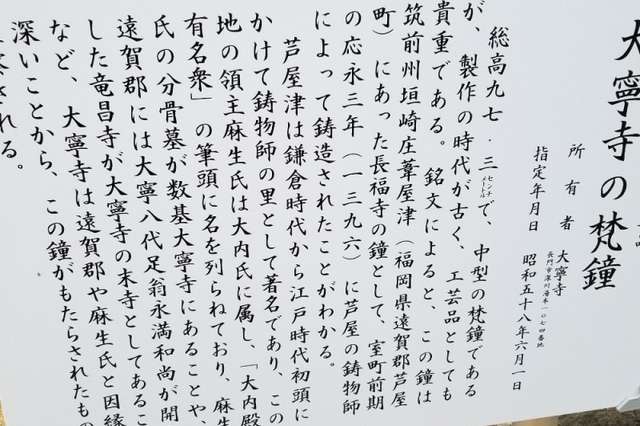 大寧寺の梵鐘
所有者 大寧寺
長門市深川湯本一〇七四番地
指定年月日 昭和五十八年六月一日
総高九七・三センチで、中型の梵鐘である
が、製作の時代が古く、工芸品としても
貴重である。銘文によると、この鐘は
筑前州垣崎庄葦屋津（福岡県遠賀郡芦屋
町）にあった長福寺の鐘として、室町前期
の応永三年（一三九六）に芦屋の鋳物師
によって鋳造されたことがわかる。
芦屋津は鎌倉時代から江戸時代初頭に
かけて鋳物師の里として著名であり、この
地の領主麻生氏は大内氏に属し、「大内殿
有名衆」の筆頭に名を列らねており、麻生
氏の分骨墓が数基大寧寺にあることや、
遠賀郡には大寧八代足翁永満和尚が開
した竜昌寺が大寧寺の末寺としてあるこ
など、大寧寺は遠賀郡や麻生氏と因縁
深いことから、この鐘がもたらされたもの
される。